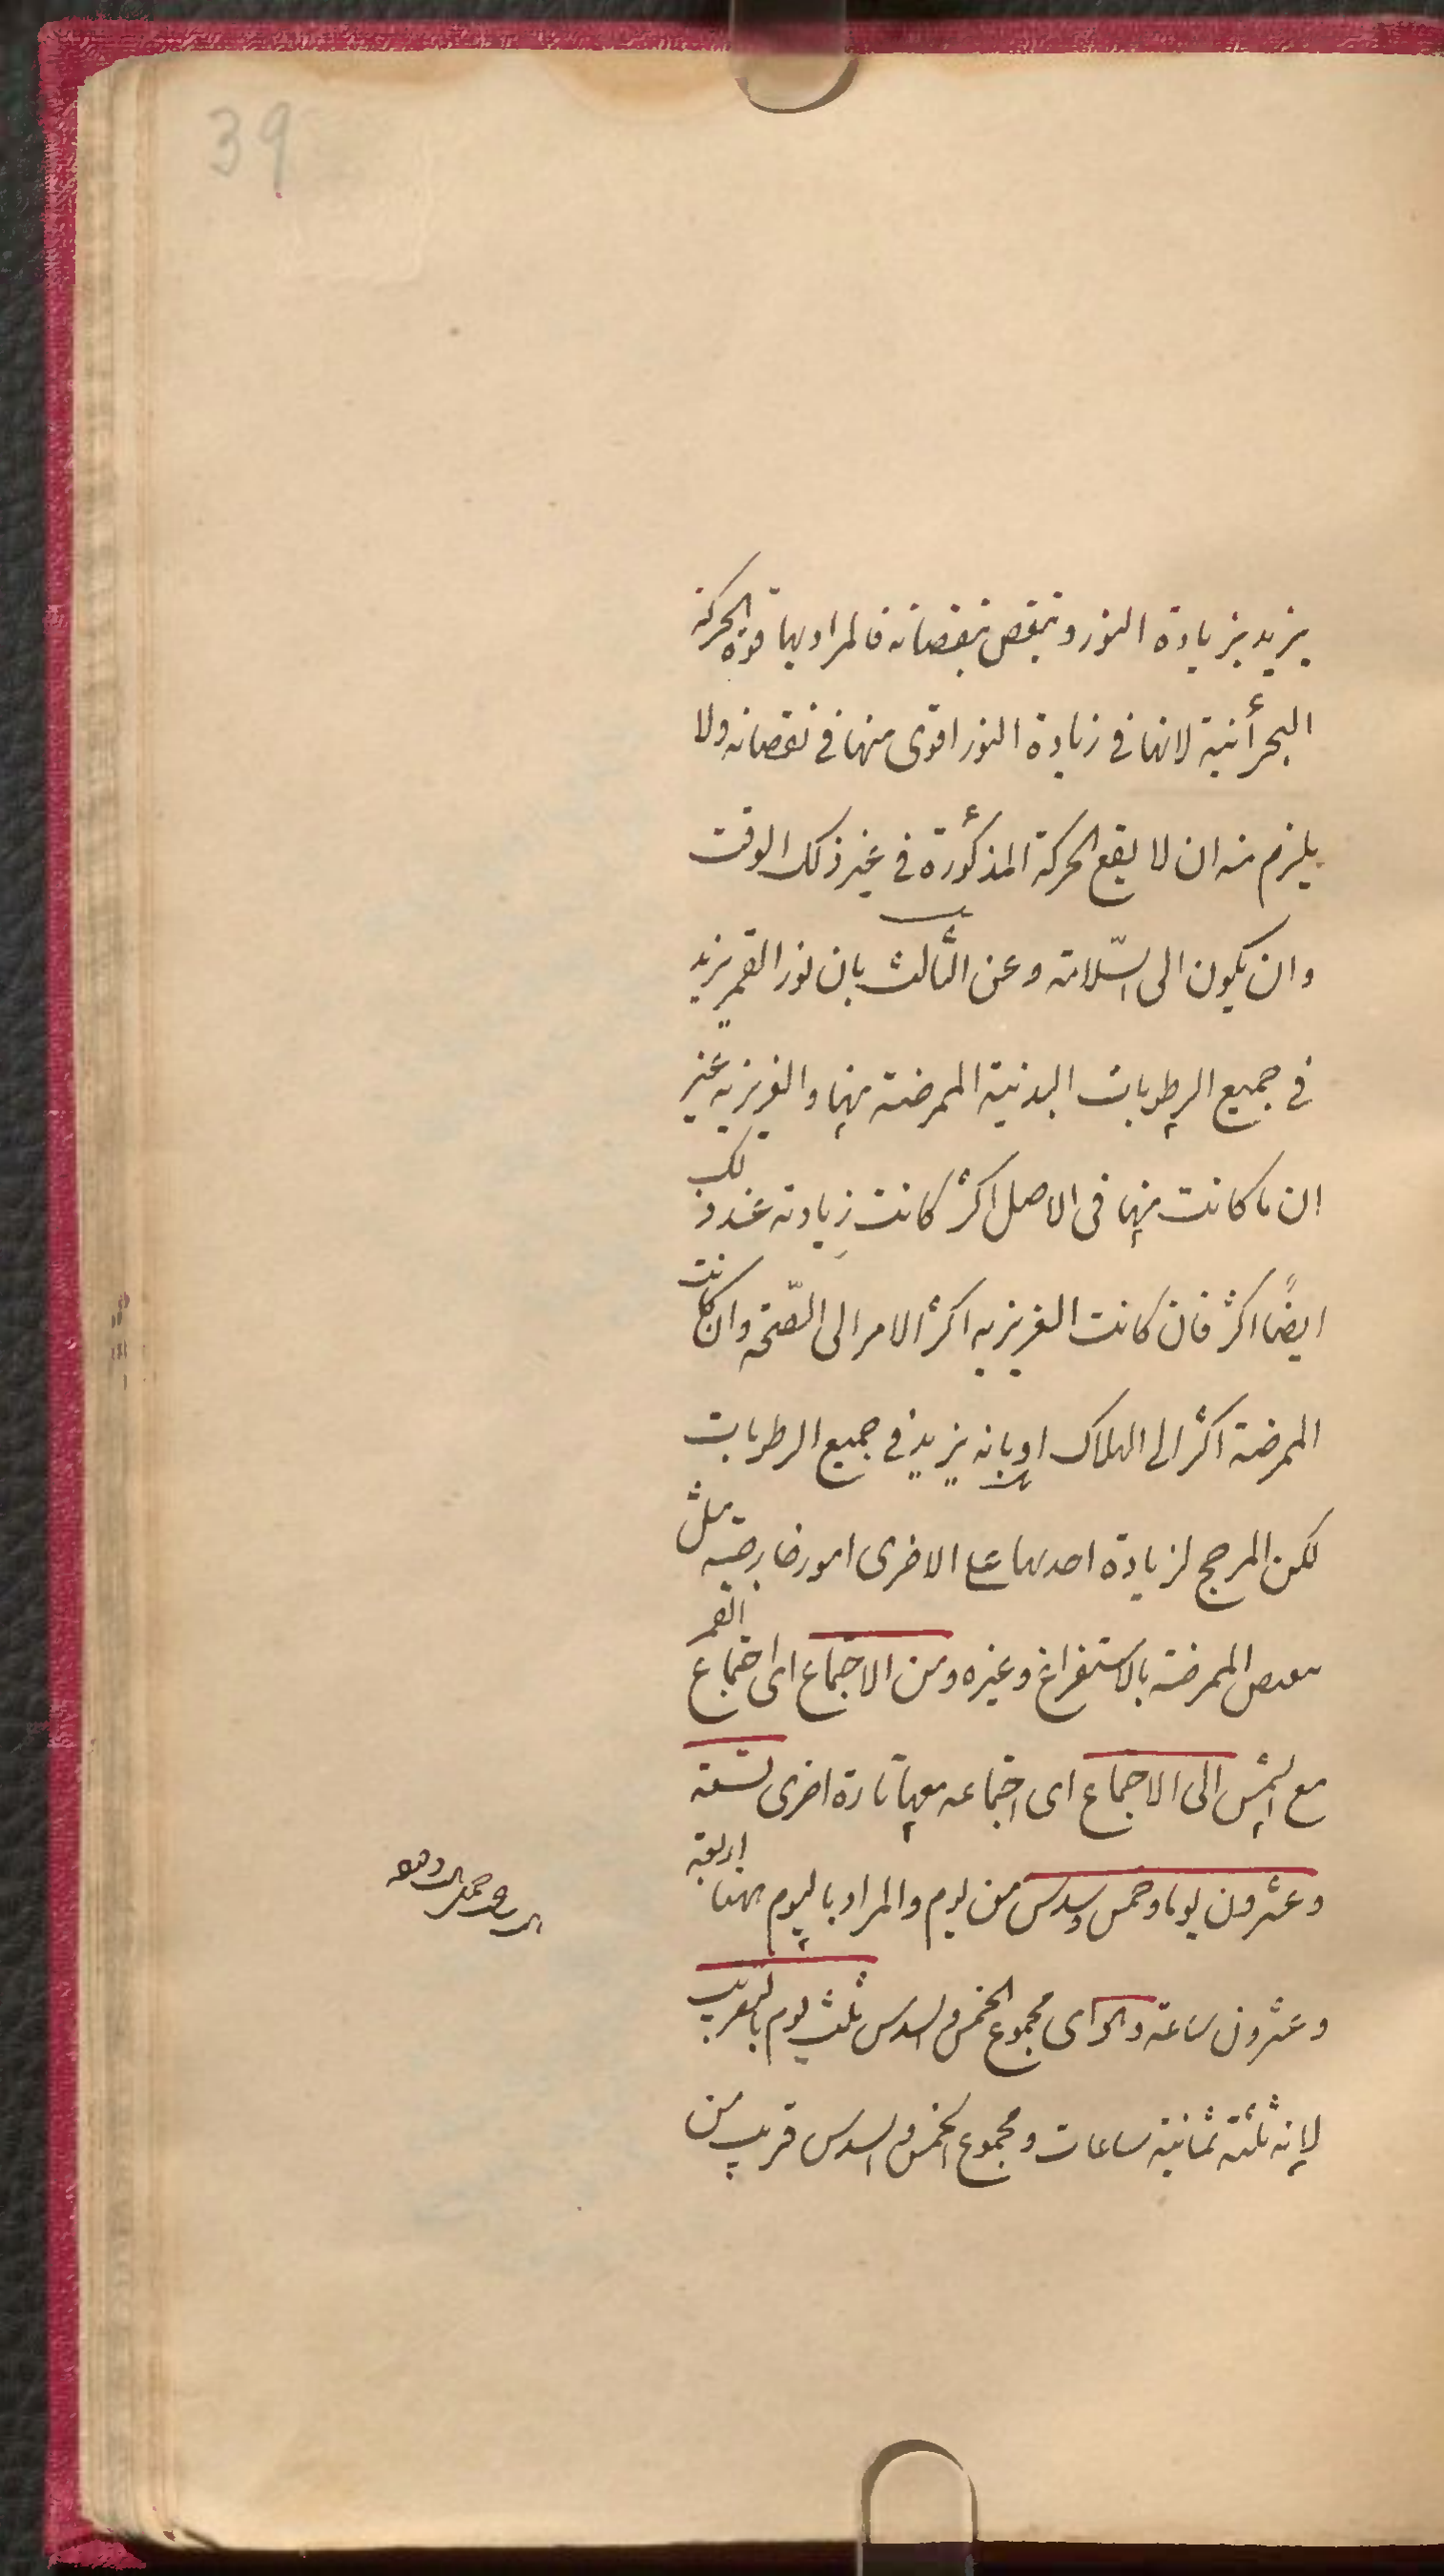 39
يزيد بزيادة النور وينقص بنقصانه فالمراد بها قوة الحركة
البحرأنية لانها فى زيادة النور اقوى منها فى نقصانه ولا
يلزم منه ان لا يقع الحركة المذكورة فى غير ذلك الوقت
وان يكون الى السّلامة وعن الثالث بان نور القمر يزيد
فى جميع الرطوبات البدنية الممرضة منها والغريزيه غير
ان ما كانت منها فى الاصل اكثر كانت زيادته عند ذلك
ايضًا اكثر فان كانت الغريزيه اكثر الامر الى الصّحة وان كانت
الممرضة اكثر الى الهلاك او بانه يزيد فى جميع الرطوبات
لكن المرجح لزيادة احديهما على الاخرى امور خارجية مثل
الممرضة بالاستفراغ وغيره ومن الاجتماع اى اجتماع القمر
مع الشمس الى الاجتماع اى اجتماعه معها تارة اخرى تسعة
وعشرون يوما وخمس وسدس من يوم والمراد باليوم ههنا اربعة
وعشرون ساعة اى مجموع الخمس والسدس ثلث يوم بالتقريب
لانه ثلثه ثمانية ساعات ومجموع الخمس والسدس قريب من